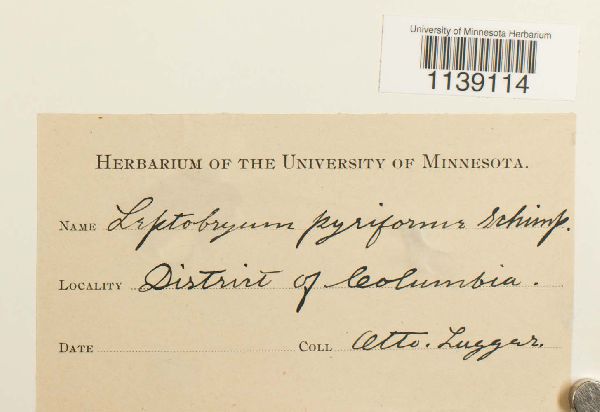 University of Minnesota Herbarium
1139114
HERBARIUM OF THE UNIVERSITY OF MINNESOTA.
NAME Leptobryum pyriforme Schimp.
LOCALITY District of Columbia.
DATE COLL Otto. Luggar.